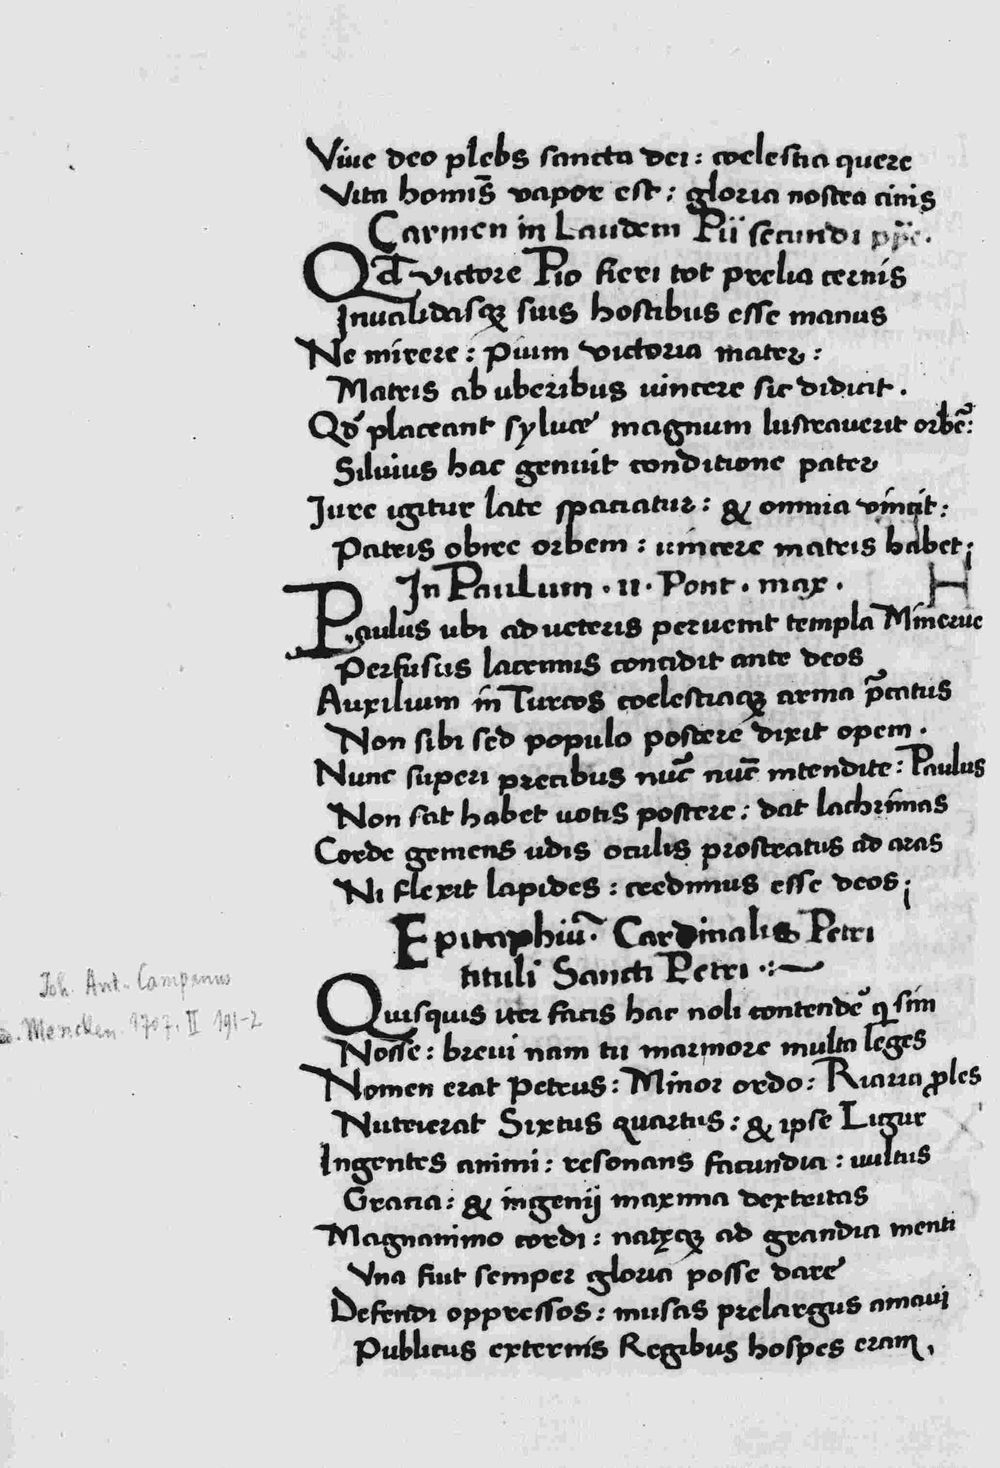 Viue deo plebs sancta dei: coelestia quere
Vita homīs vapor est: gloria nostra cinis
Carmen in Laudem Pii secundi pp̄e.
Qd̄ victore Pio fieri tot prelia cernis
Inualidasqꝫ suis hostibus esse manus
Ne mirere: pium victoria mater:
Matris ab uberibus uincere sic didicit.
Qd̄ placeant syluae magnum lustrauerit orbē:
Siluius hac genuit conditione pater
Iure igitur late spaciatur: & omnia vincit:
Patris obire orbem: uincere matris habet;
In Paulum . II . Pont . max .
H
Paulus ubi ad ueteris peruenit templa Mineruę
Perfusus lacrimis concidit ante deos
Auxilium in Turcos coelestiaqꝫ arma p̄catus
Non sibi sed populo poscere dixit opem .
Nunc superi precibus nūc nūc intendite: Paulus
Non sat habet uotis poscere: dat lachrimas
Corde gemens udis oculis prostratus ad aras
Ni flexit lapides: credimus esse deos;
Epitaphiū Cardinalis Petri
tituli Sancti Petri
Joh. Ant. Campanus
Quisquis iter facis hac noli contendē q̄ sim
Mencken 1707. II 191-2
Nosse: breui nam tu marmore multa leges
Nomen erat Petrus: Minor ordo: Riaria ꝓles
Nutrierat Sixtus quartus: & ipse Ligur
Ingentes animi: resonans facundia: uultus
Gracia: & ingenij maxima dexteritas
Magnanimo cordi: natęqꝫ ad grandia menti
Vna fuit semper gloria posse dare
Defendi oppressos: musas prelargus amaui
Publicus externis Regibus hospes eram,